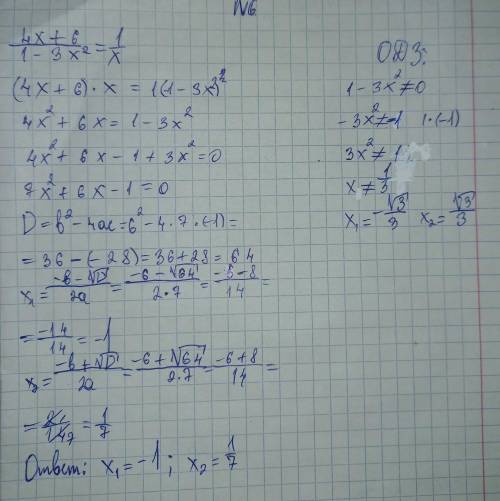 N6
(4x + 6)/(1 - 3x²) = 1/x
(4x + 6) · x = 1(1 - 3x²)
4x² + 6x = 1 - 3x²
4x² + 6x - 1 + 3x² = 0
7x² + 6x - 1 = 0
D = b² - 4ac = 6² - 4 · 7 · (-1) =
= 36 - (-28) = 36 + 28 = 64
x₁ = (-b - √D)/2a = (-6 - √64)/(2·7) = (-6 - 8)/14 =
= -14/14 = -1
x₂ = (-b + √D)/2a = (-6 + √64)/(2·7) = (-6 + 8)/14 =
= 2/14 = 1/7
Ответ: x₁ = -1; x₂ = 1/7
ОДЗ:
1 - 3x² ≠ 0
-3x² ≠ -1 | · (-1)
3x² ≠ 1
x ≠ 1/3
x₁ = -√3/3 x₂ = √3/3